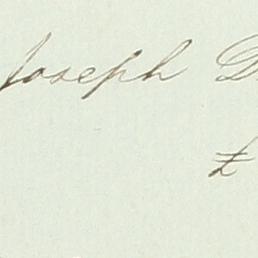 Joseph D
£